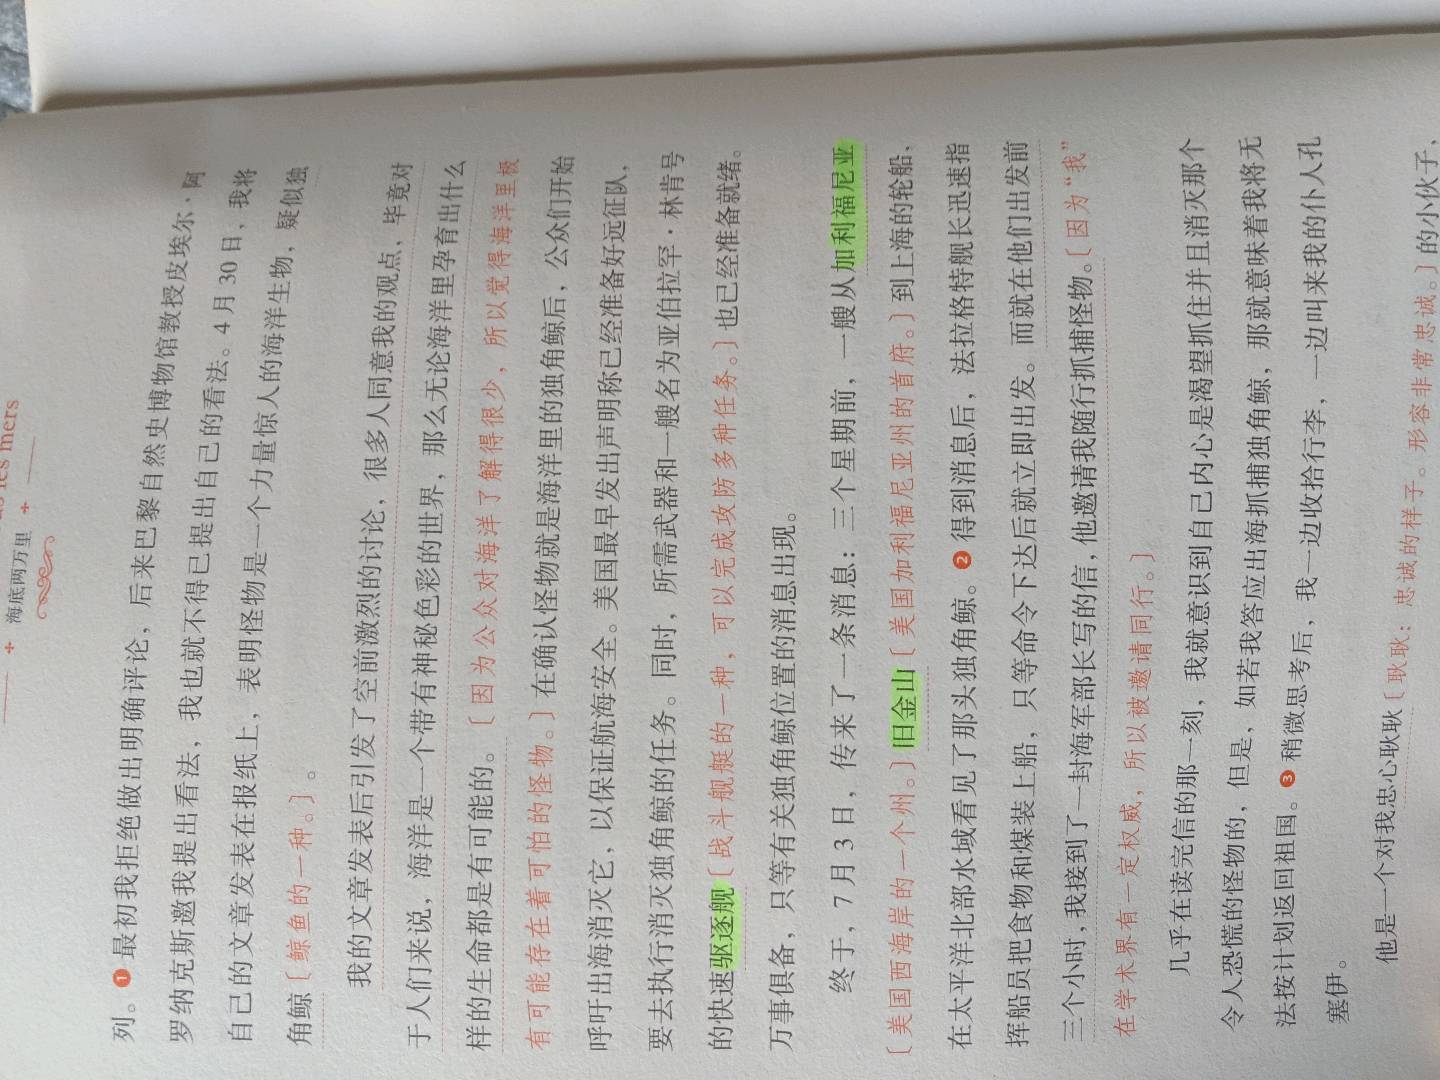 us les mers
海底两万里
列。❶最初我拒绝做出明确评论，后来巴黎自然史博物馆教授皮埃尔·阿
罗纳克斯邀我提出看法，我也就不得已提出自己的看法。4月30日，我将
自己的文章发表在报纸上，表明怪物是一个力量惊人的海洋生物，疑似独
角鲸〔鲸鱼的一种。〕。
我的文章发表后引发了空前激烈的讨论，很多人同意我的观点，毕竟对
于人们来说，海洋是一个带有神秘色彩的世界，那么无论海洋里孕育出什么
样的生命都是有可能的。〔因为公众对海洋了解得很少，所以觉得海洋里极
有可能存在着可怕的怪物。〕在确认怪物就是海洋里的独角鲸后，公众们开始
呼吁出海消灭它，以保证航海安全。美国最早发出声明称已经准备好远征队，
要去执行消灭独角鲸的任务。同时，所需武器和一艘名为亚伯拉罕·林肯号
的快速驱逐舰〔战斗舰艇的一种，可以完成攻防多种任务。〕也已经准备就绪。
万事俱备，只等有关独角鲸位置的消息出现。
终于，7月3日，传来了一条消息：三个星期前，一艘从加利福尼亚
〔美国西海岸的一个州。〕旧金山〔美国加利福尼亚州的首府。〕到上海的轮船，
在太平洋北部水域看见了那头独角鲸。❷得到消息后，法拉格特舰长迅速指
挥船员把食物和煤装上船，只等命令下达后就立即出发。而就在他们出发前
三个小时，我接到了一封海军部长写的信，他邀请我随行抓捕怪物。〔因为“我”
在学术界有一定权威，所以被邀请同行。〕
几乎在读完信的那一刻，我就意识到自己内心是渴望抓住并且消灭那个
令人恐慌的怪物的，但是，如若我答应出海抓捕独角鲸，那就意味着我将无
法按计划返回祖国。❸稍微思考后，我一边收拾行李，一边叫来我的仆人孔
塞伊。
他是一个对我忠心耿耿〔耿耿：忠诚的样子。形容非常忠诚。〕的小伙子，